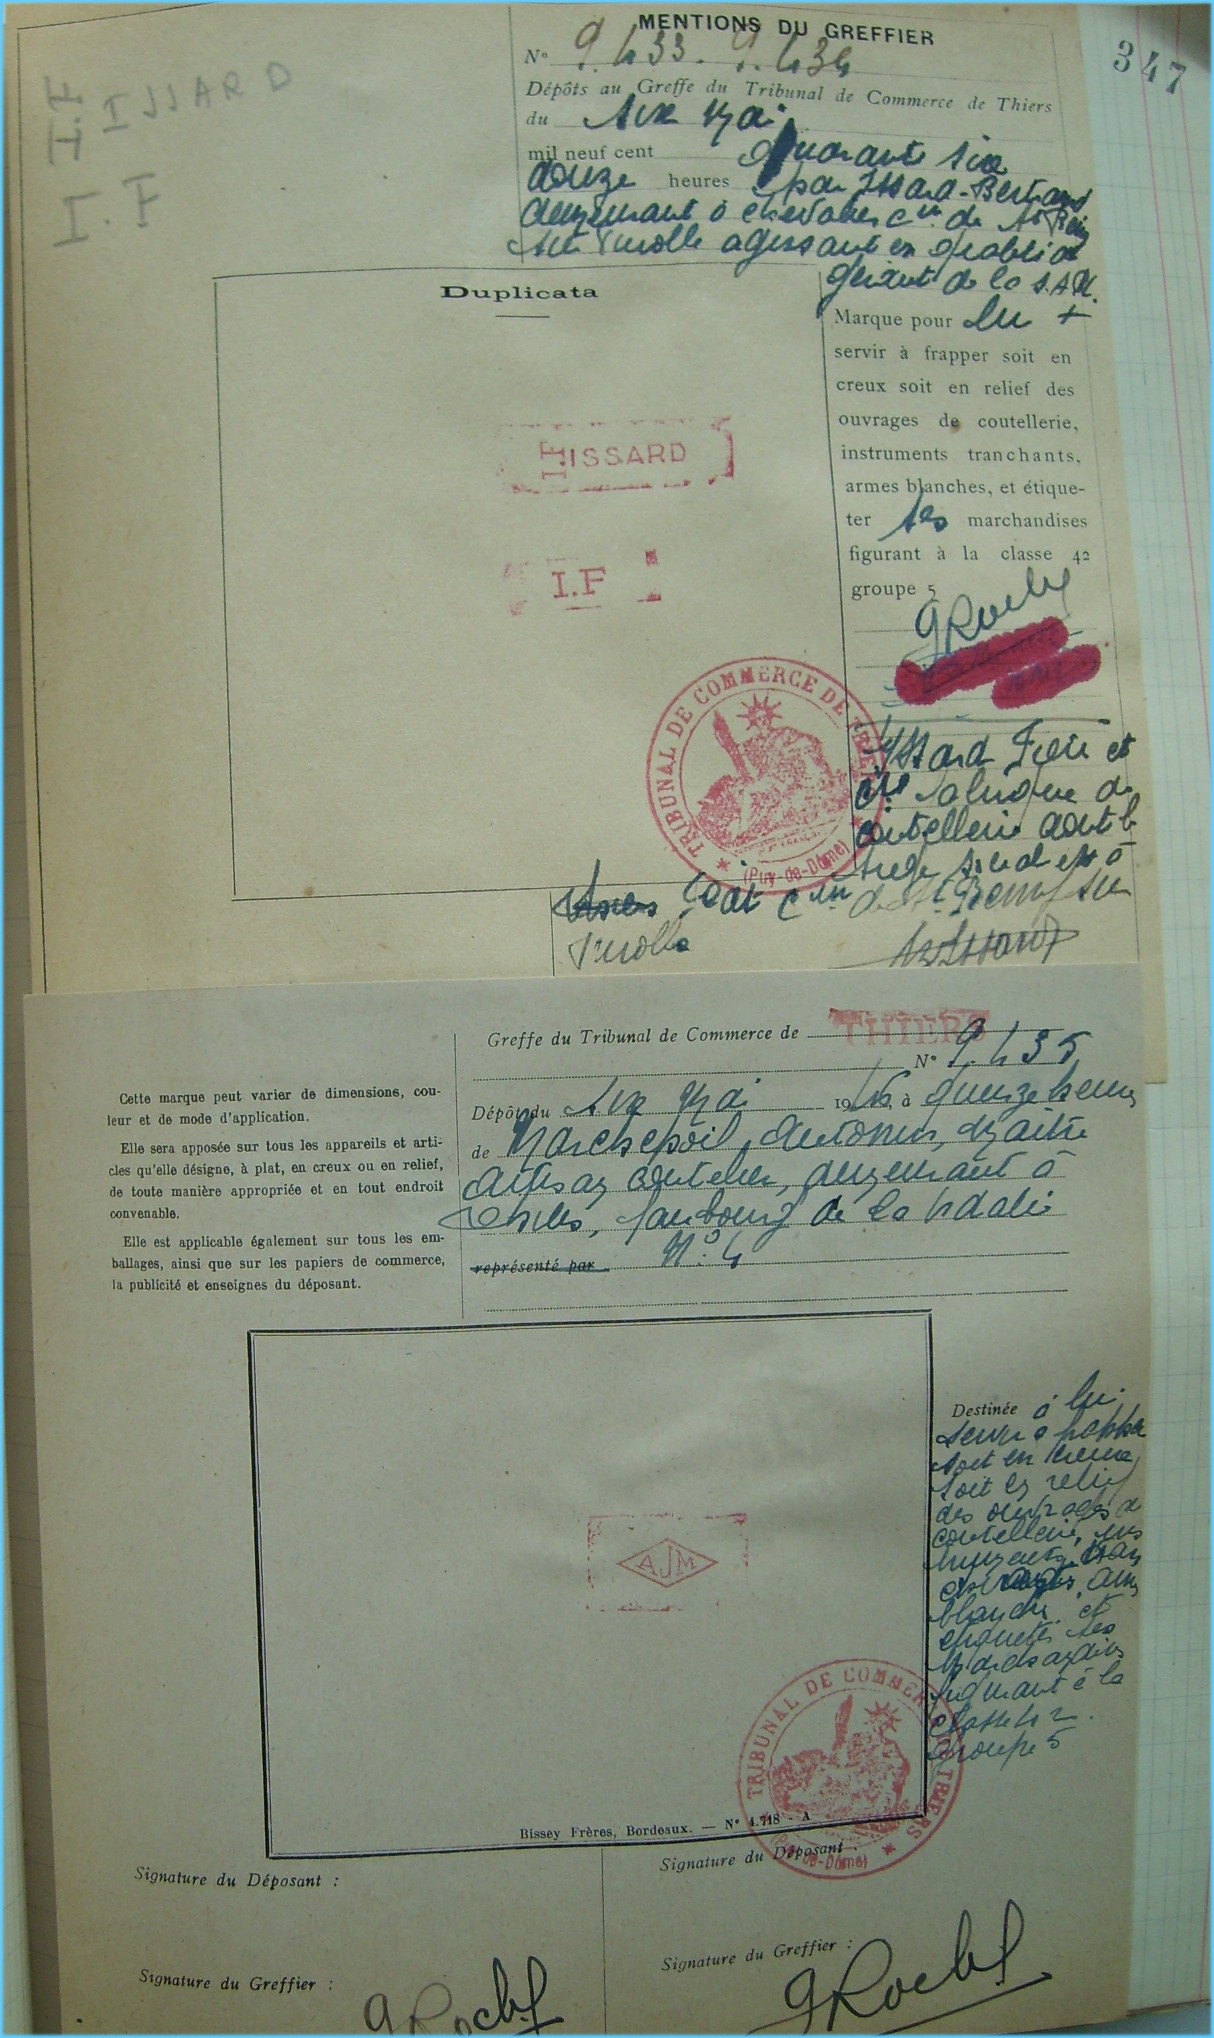 347
MENTIONS DU GREFFIER
N° 9.433. 9.434
Dépôts au Greffe du Tribunal de Commerce de Thiers
du six Mai
mil neuf cent quarante six
douze heures par Issard-Bertrand
demeurant à chevalier cne de St Rémy
sur Durolle agissant en qualité de
gérant de la S.A.R.
H.
H. ISSARD
I.F
Duplicata
Marque pour lui +
servir à frapper soit en
creux soit en relief des
ouvrages de coutellerie,
instruments tranchants,
armes blanches, et étique-
ter ses marchandises
figurant à la classe 42
groupe 5
ISSARD
I.F
TRIBUNAL DE COMMERCE DE THIERS
(Puy-de-Dôme)
Issard Frère et
Cie fabrique de
coutellerie dont le
siège social est à
dit cne de St Remy sur
Durolle
Greffe du Tribunal de Commerce de THIERS
N° 9.435
Dépôt du six Mai 1946, à quinze heures
de Marchepoil, Antonin, Maître
Artisan coutelier, demeurant à
Thiers, faubourg de la Vidalie
représenté par N° 4
Cette marque peut varier de dimensions, cou-
leur et de mode d'application.
Elle sera apposée sur tous les appareils et arti-
cles qu'elle désigne, à plat, en creux ou en relief,
de toute manière appropriée et en tout endroit
convenable.
Elle est applicable également sur tous les em-
ballages, ainsi que sur les papiers de commerce,
la publicité et enseignes du déposant.
Destinée à lui
servir à frapper
soit en creux
soit en relief
des ouvrages de
coutellerie, ins
blanches et
étiqueter ses
marchandises
figurant à la
classe 42
groupe 5
AJM
TRIBUNAL DE COMMERCE DE THIERS
(Puy-de-Dôme)
Bissey Frères, Bordeaux. — N° 4.718 - A
Signature du Déposant :
Signature du Déposant :
Signature du Greffier :
Signature du Greffier :